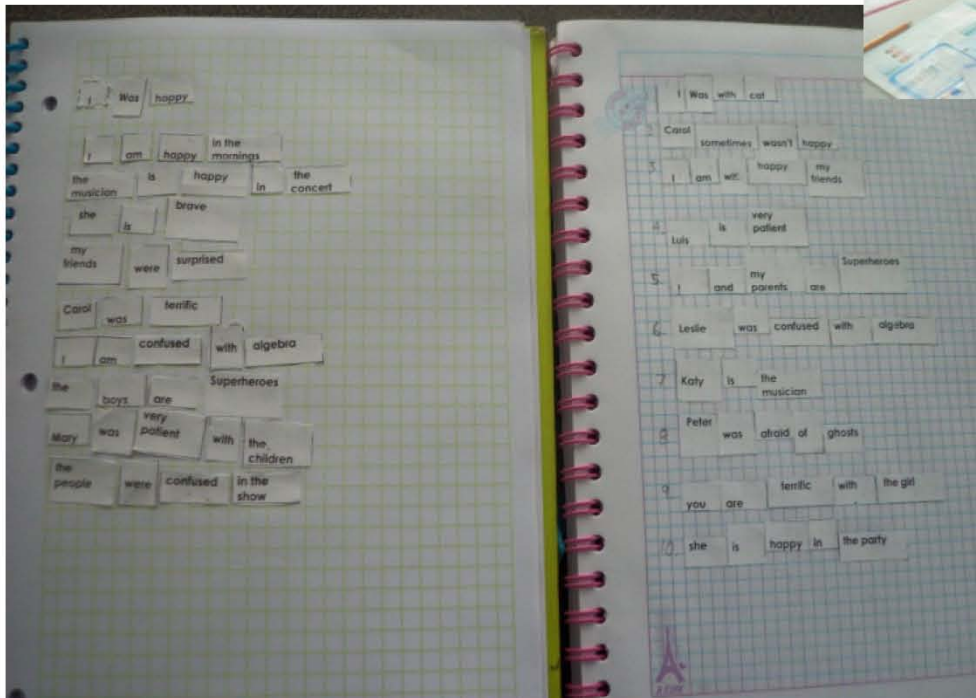 I Was happy
I am happy in the mornings
the musician is happy in the concert
she is brave
my friends were surprised
Carol was terrific
I am confused with algebra
the boys are Superheroes
Mary was very patient with the children
the people were confused in the show
I Was with cat
2 Carol sometimes wasn't happy
3. I am wit happy my friends
4 Luis is very patient
5. I and my parents are Superheroes
6. Leslie was confused with algebra
7 Katy is the musician
8 Peter was afraid of ghosts
9 you are terrific with the girl
10. she is happy in the party